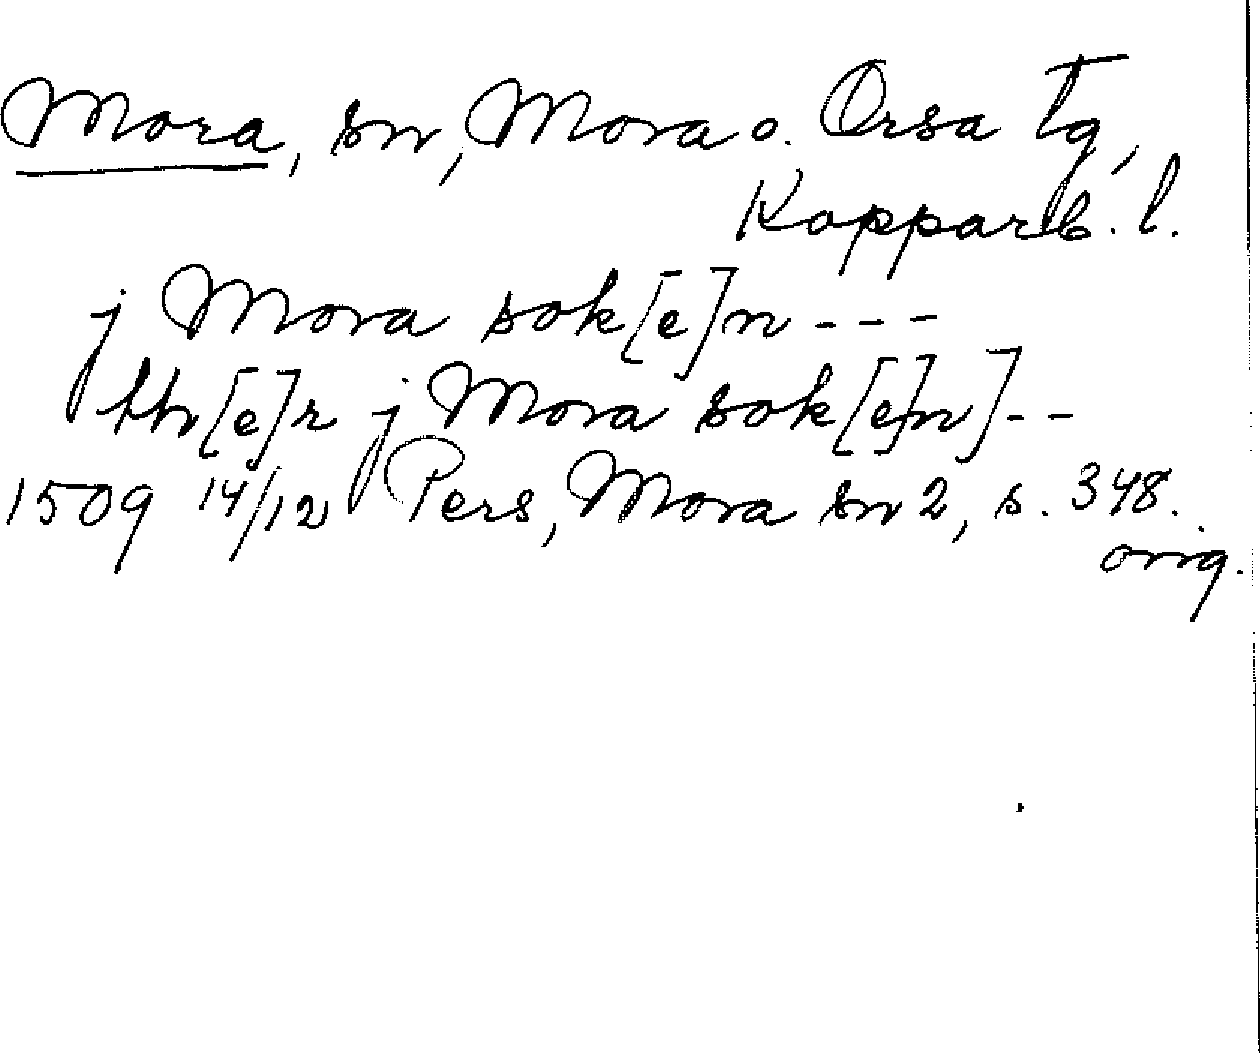 Mora, sn, Mora o. Orsa tg,
Kopparb. l.
j Mora sok[e]n - - -
thr[e]r j Mora sok[e]n] - -
1509 14/12 Pers, Mora sn 2, s. 348.
orig.